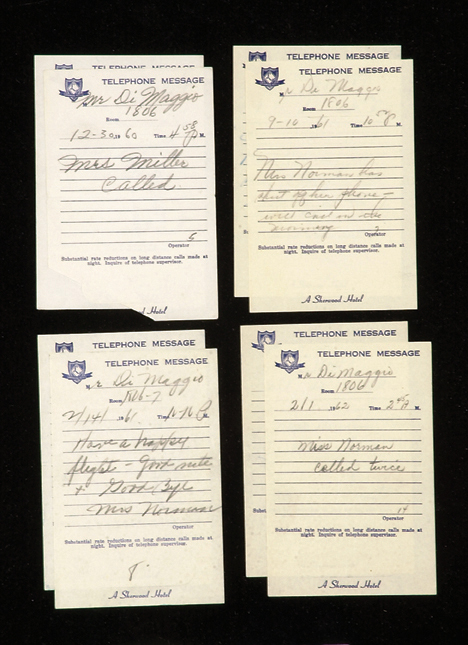 TELEPHONE MESSAGE
TELEPHONE MESSAGE
Mr Di Maggio
1806
Room
12-30, 1960 Time 4 58 P M.
Mrs Miller
Called
5
Operator
Substantial rate reductions on long distance calls made at
night. Inquire of telephone supervisor.
d Hotel
TELEPHONE MESSAGE
TELEPHONE MESSAGE
Mr Di Maggio
Room 1806
9-10 1961 Time P M.
Mrs Norman has
shut off her phone—
will call in the
morning
Operator
Substantial rate reductions on long distance calls made at
night. Inquire of telephone supervisor.
A Sherwood Hotel
TELEPHONE MESSAGE
TELEPHONE MESSAGE
Mr Di Maggio
Room 1806-7
2/14/ 1961 Time P M.
Have a happy
flight - Good nite
+ Good Bye
Mrs Norman
Operator
Substantial rate reductions on long distance calls made at
night. Inquire of telephone supervisor.
A Sherwood Hotel
TELEPHONE MESSAGE
TELEPHONE MESSAGE
Mr Di Maggio
Room 1806
2/1 1962 Time 2 45 P M.
Miss Norman
called twice
Subst
14
Operator
Substantial rate reductions on long distance calls made at
night. Inquire of telephone supervisor.
A Sherwood Hotel